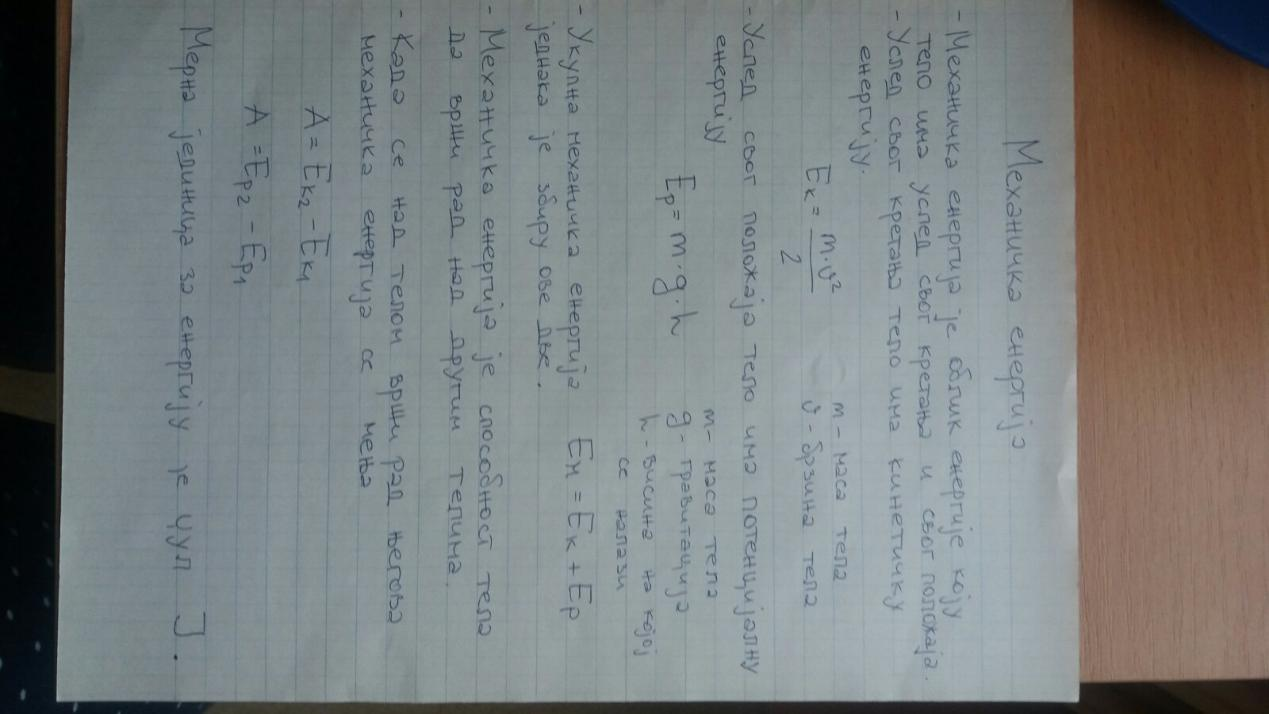 Механичка енергија
- Механичка енергија је облик енергије коју
тело има услед свог кретања и свог положаја.
- Услед свог кретања тело има кинетичку
енергију.
m - маса тела
Eк = m·v²/2
v - брзина тела
- Услед свог положаја тело има потенцијалну
енергију
m - маса тела
Ep = m·g·h
g - гравитација
h - висина на којој
се налази
- Укупна механичка енергија Eм = Eк + Ep
једнака је збиру ове две.
- Механичка енергија је способност тела
да врши рад над другим телима.
- Када се над телом врши рад његова
механичка енергија се мења
A = Eк2 - Eк1
A = Ep2 - Ep1
Мерна јединица за енергију је џул J.